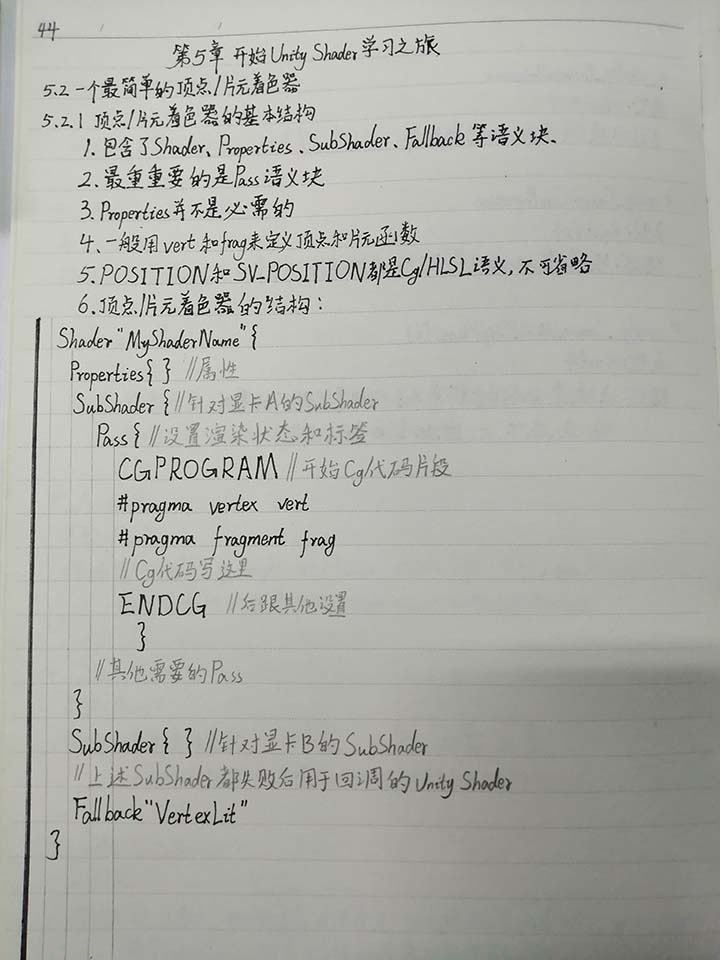 44
第5章 开始Unity Shader学习之旅
5.2 一个最简单的顶点/片元着色器
5.2.1 顶点/片元着色器的基本结构
1. 包含了Shader、Properties、SubShader、Fallback等语义块、
2. 最重重要的是Pass语义块
3. Properties并不是必需的
4. 一般用vert和frag来定义顶点和片元函数
5. POSITION和SV_POSITION都是Cg/HLSL语义,不可省略
6. 顶点/片元着色器的结构:
Shader "MyShaderName"{
Properties{ } //属性
SubShader{ //针对显卡A的SubShader
Pass{ //设置渲染状态和标签
CGPROGRAM //开始Cg代码片段
#pragma vertex vert
#pragma fragment frag
//Cg代码写这里
ENDCG //后跟其他设置
}
//其他需要的Pass
}
SubShader{ } //针对显卡B的SubShader
//上述SubShader都失败后用于回调的Unity Shader
Fallback"VertexLit"
}